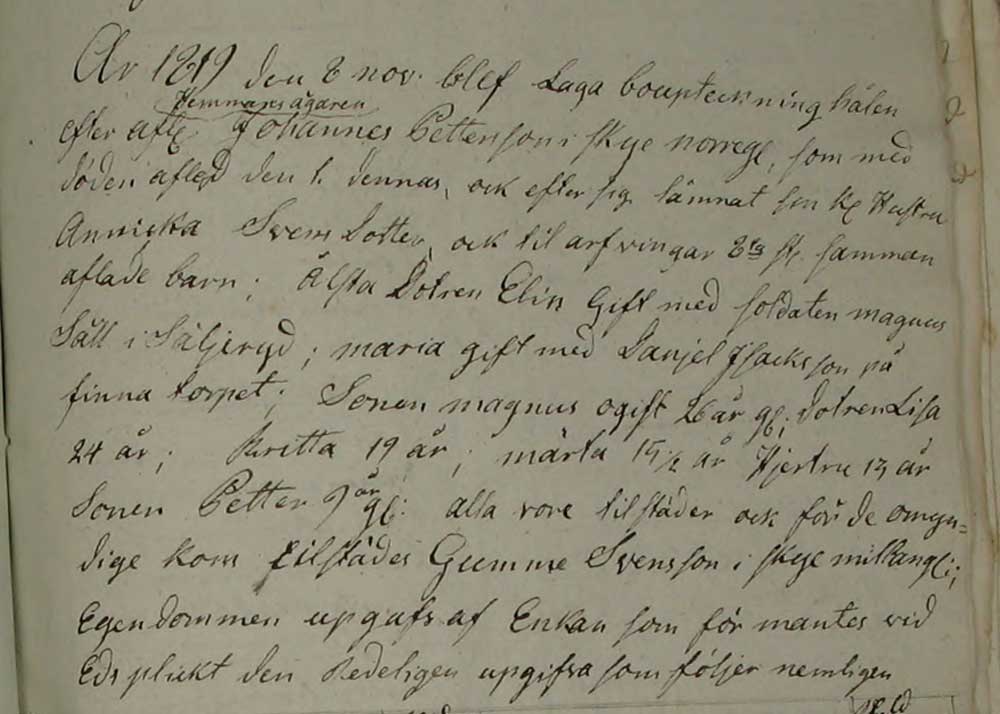 År 1819 den 8 nov. blef Laga boupteckning hålen
Hemmans ägaren
efter afl. Johannes Pettersson i Skye norregl, som med
döden afled den 1. dennas, ock efter sig lämnat sin k. Hustru
Annicka Svens Dotter, ock til arfvingar 8ta st. samman
aflade barn; Älsta Dotren Elin Gift med soldaten magnus
Säll i Säljeryd; maria gift med Danjel Jsacksson på
finna torpet; Sonen magnus ogift 26 år gl; dotren Lisa
24 år; Britta 19 år; märta 15 1/2 år Kjerstru 13 år
Sonen Petter 9 år gl: alla vore tilstäder ock för de omyn=
dige kom tilstädes Gumme Svensson i Skye millangl:;
Egendommen upgafs af Enkan som för mantes vid
Eds plickt den Redeligen upgifva som följer nemligen